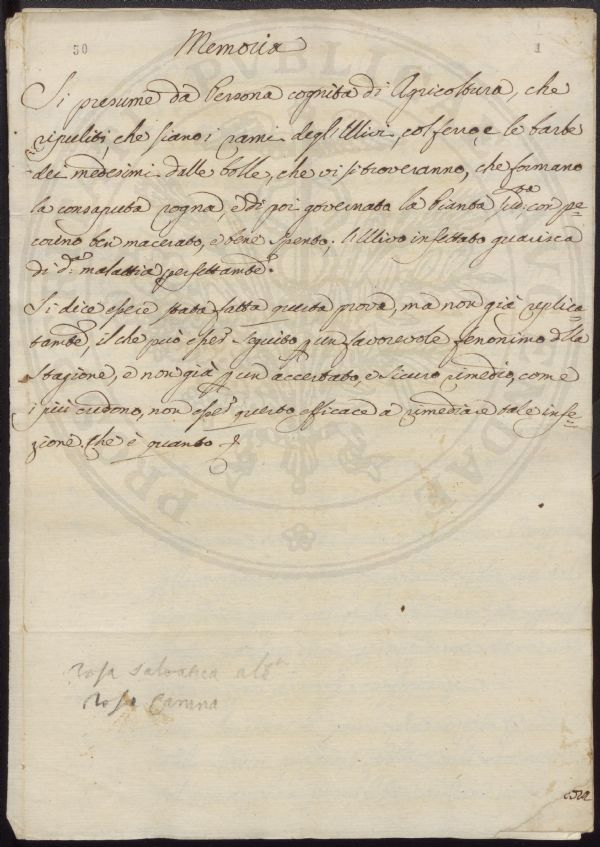 30
Memoria
1
Si presume da Persona cognita di Agricoltura, che
ripuliti, che siano i rami degl'Ulivi, col ferro, e le barbe
dei medesimi dalle bolle, che vi si troveranno, che formano
la consaputa rogna, e di poi governato la Pianta sud.a con pe=
corino ben macerato, e bene spento; l'Ulivo infettato guarisca
di d.a malattia perfettam.e.
Si dice essere stata fatta questa prova, ma non già replica=
tam.e, il che può esser seguito p un favorevole fenonimo della
Stagione, e non già p un accertato, e sicuro rimedio, come
i più credono, non esser questo efficace a rimediare tale infe=
zione. Che è quanto
rosa salvatica
rosa Canina